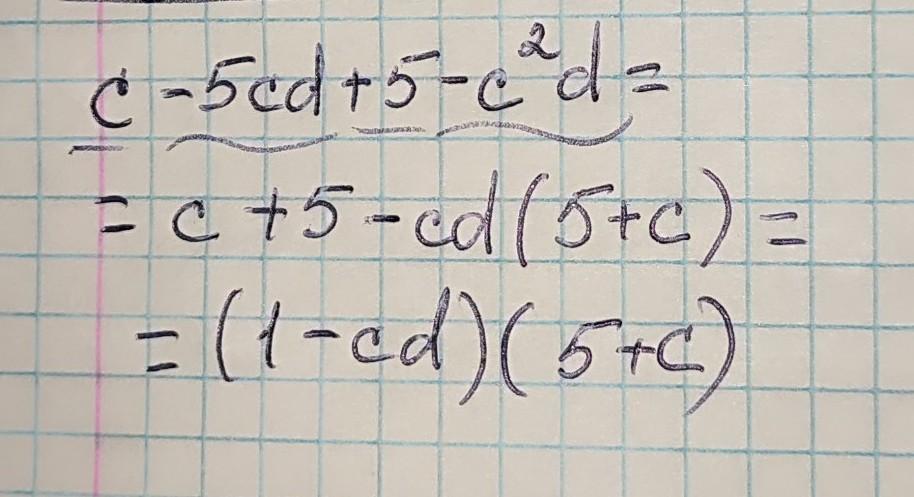 c - 5cd + 5 - c²d =
= c + 5 - cd(5 + c) =
= (1 - cd)(5 + c)